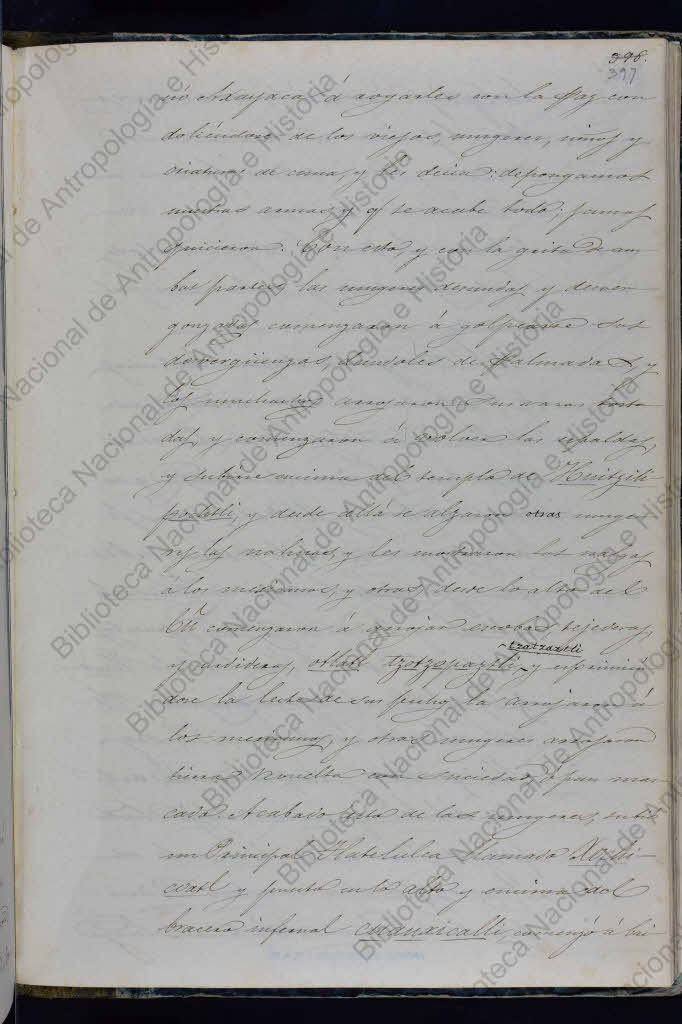 398.
397
nó Axayaca á rogarles con la Paz con
doliéndose de los viejos, mugeres, niños y
criaturas de cuna, y les decia: depongamos
nuestras armas, y q se acabe todo: jamas
quisieron. Con esto, y con la grita de am
bas partes, las mugeres desnudas y desver
gonzadas comenzaron á golpearse sus
desvergüenzas, dandoles de Palmadas, y
los arrojaron sus varas tosta
das, y comenzaron á volver las espaldas,
y subirse encima del templo de Huitzili
pochtli, y desde allá se alzaron otras muge
res las nalgas, y les mostraron las nalgas
á los mexicanos, y otras, desde lo alto del
Cú comenzaron á arrojar escobas, tejederas,
tzatzaztli
y urdideras, otlatl tzotzopaztli, y esprimien
dose la leche de sus pechos la arrojaron á
los mexicanos, y otras mugeres arrojaron
tierra revuelta con suciedad, ó pan mas
cado. Acabado esto de las mugeres, subió
un Principal Tlatelulca llamado Xochi-
coatl y puesto en lo alto y encima del
bracero infernal cuauxicalli, comenzó á bai
Biblioteca Nacional de Antropología e Historia